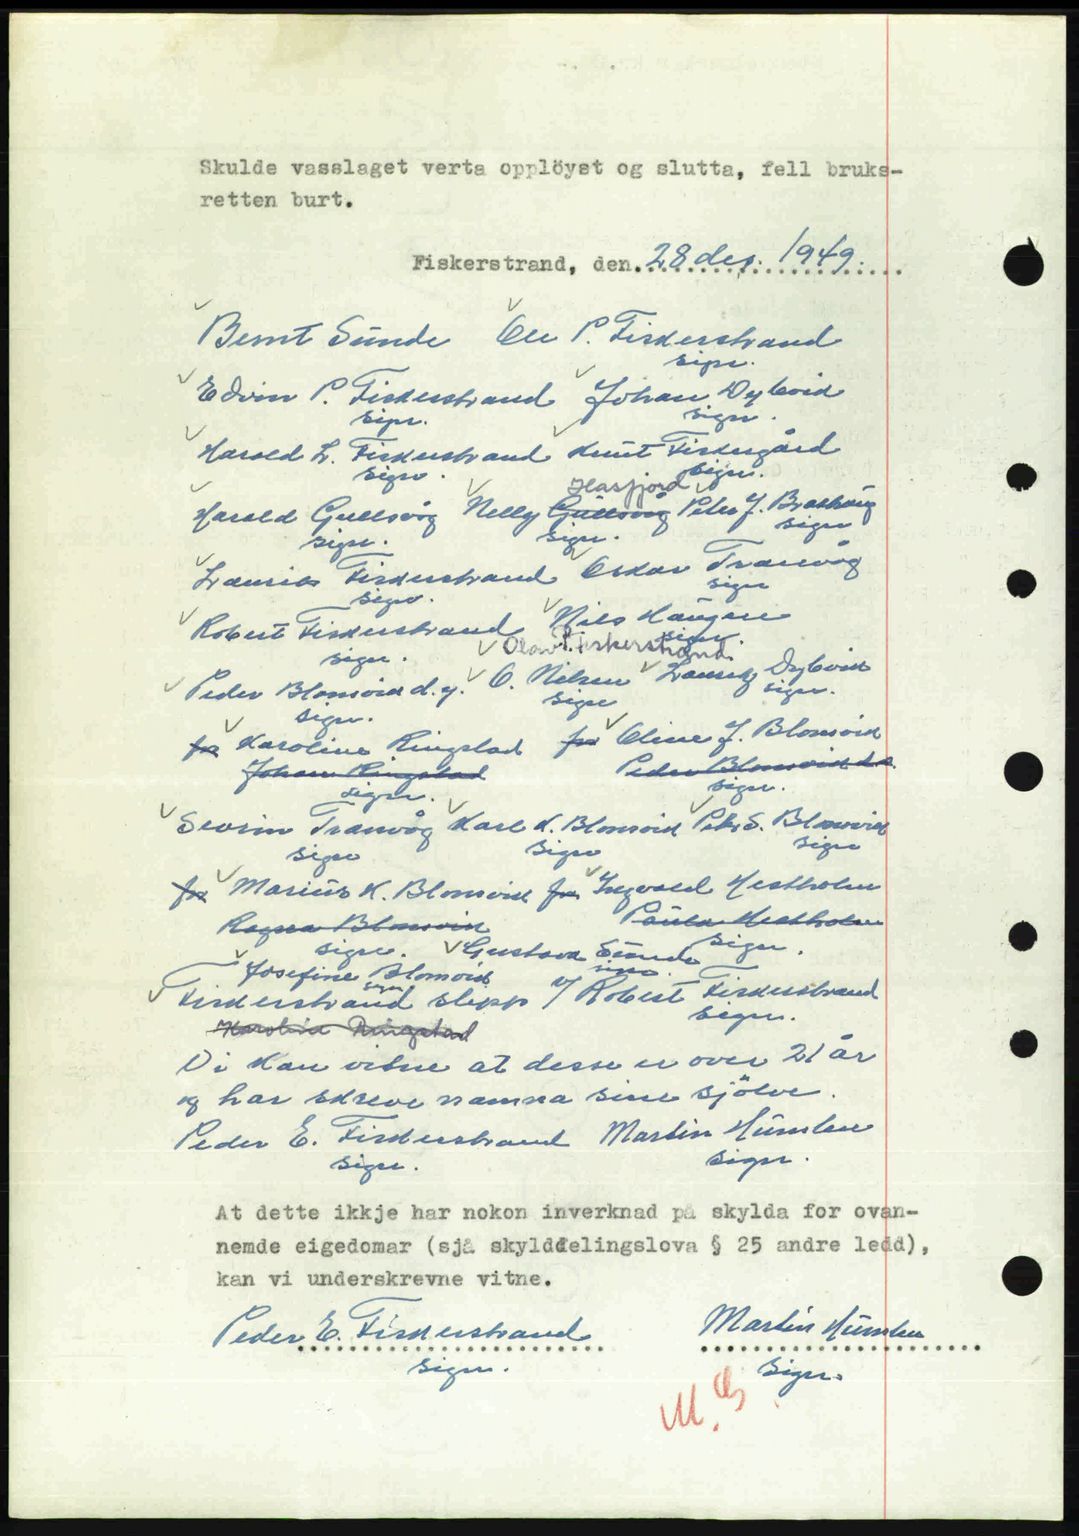 Skulde vasslaget verta opplöyst og slutta, fell bruks-
retten burt.
Fiskerstrand, den. 28 des. 1949.
Bernt Sunde Ole P. Fiskerstrand
sign.
Edvin P. Fiskerstrand Johan Dybvid
sign. sign.
Harold L. Fiskerstrand Knut Fiskergård
sign. sign.
Hasfjord
Harald Gullsvåg Nelly Gullsvåg Peter J.
sign. sign. sign
Laurits Fiskerstrand Oskar Tranvåg
sign. sign
Robert Fiskerstrand Nils Haugen
sign. sign.
Olav P. Fiskerstrand
Peder Blomvik d.y. O. Nilsen Lauritz Dybvik
sign. sign sign.
for Karoline Ringstad for Oline J. Blomvik
Johan Ringstad Peder Blomvik d.e.
sign. sign.
Severin Tranvåg Karl K. Blomvik Petr S. Blomvik
sign sign sign
for Marius K. Blomvik for Ingvald Hestholm
Ragna Blomvik Paula Hestholm
sign. sign.
Gustava Sunde
sign.
Josefine Blomvik
sign
Fiskerstrand slipp y/ Robert Fiskerstrand
sign.
Karolina Ringstad
Vi kan vitne at desse er over 21 år
og har skreve namna sine sjölve.
Peder E. Fiskerstrand Martin Humlen
sign. sign.
At dette ikkje har nokon inverknad på skylda for ovan-
nemde eigedomar (sjå skylddelingslova § 25 andre ledd),
kan vi underskrevne vitne.
Peder E. Fiskerstrand Martin Humlen
sign. sign.